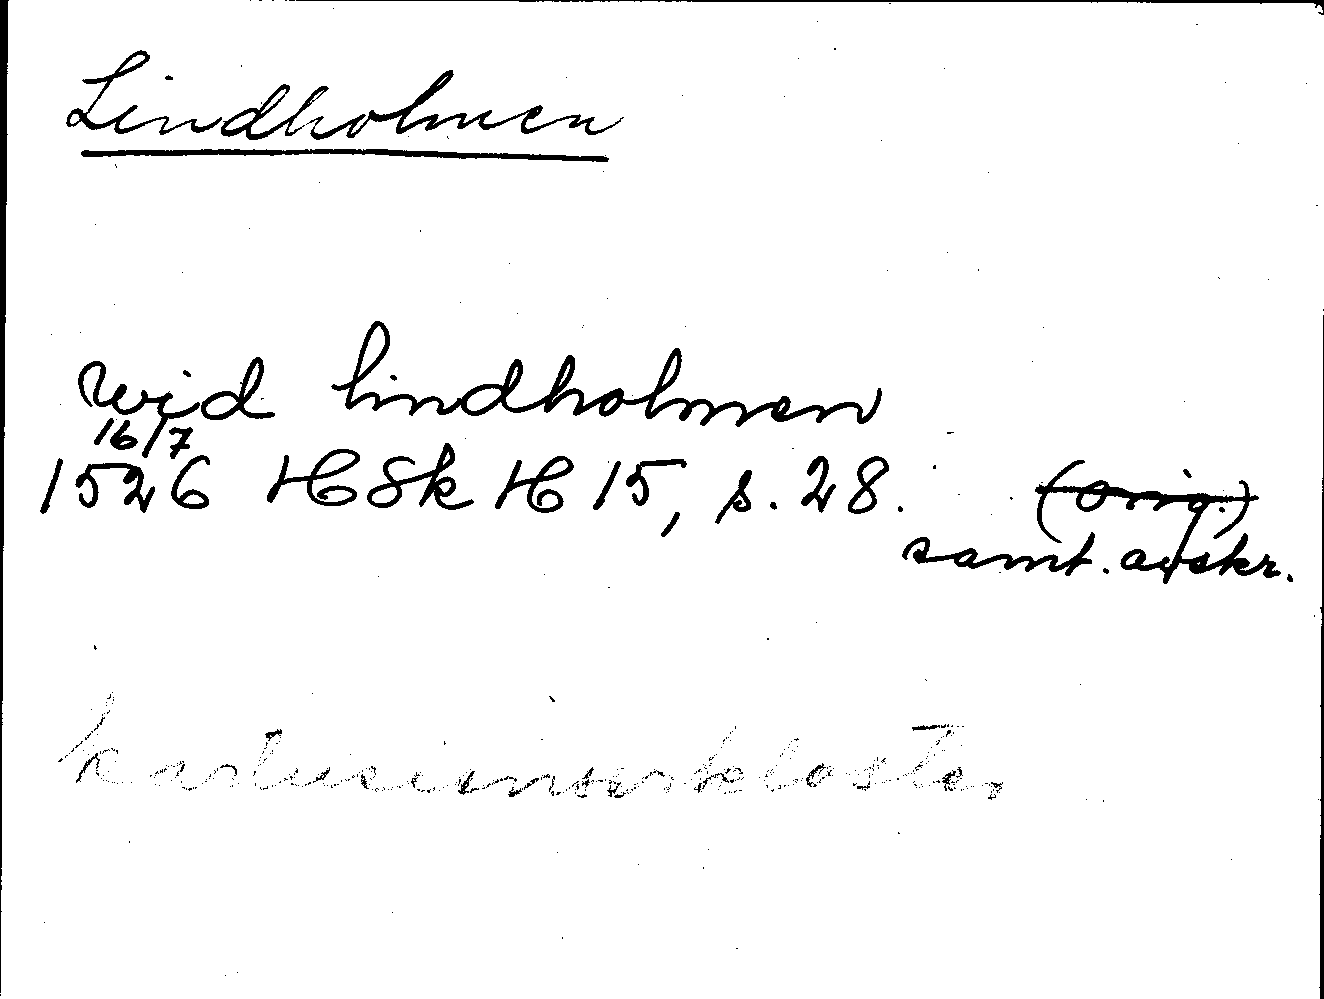 Lindholmen
wid lindholmen
16/7
1526 HSk H 15, s. 28. (orig.)
samt. avskr.
kartusianserkloster